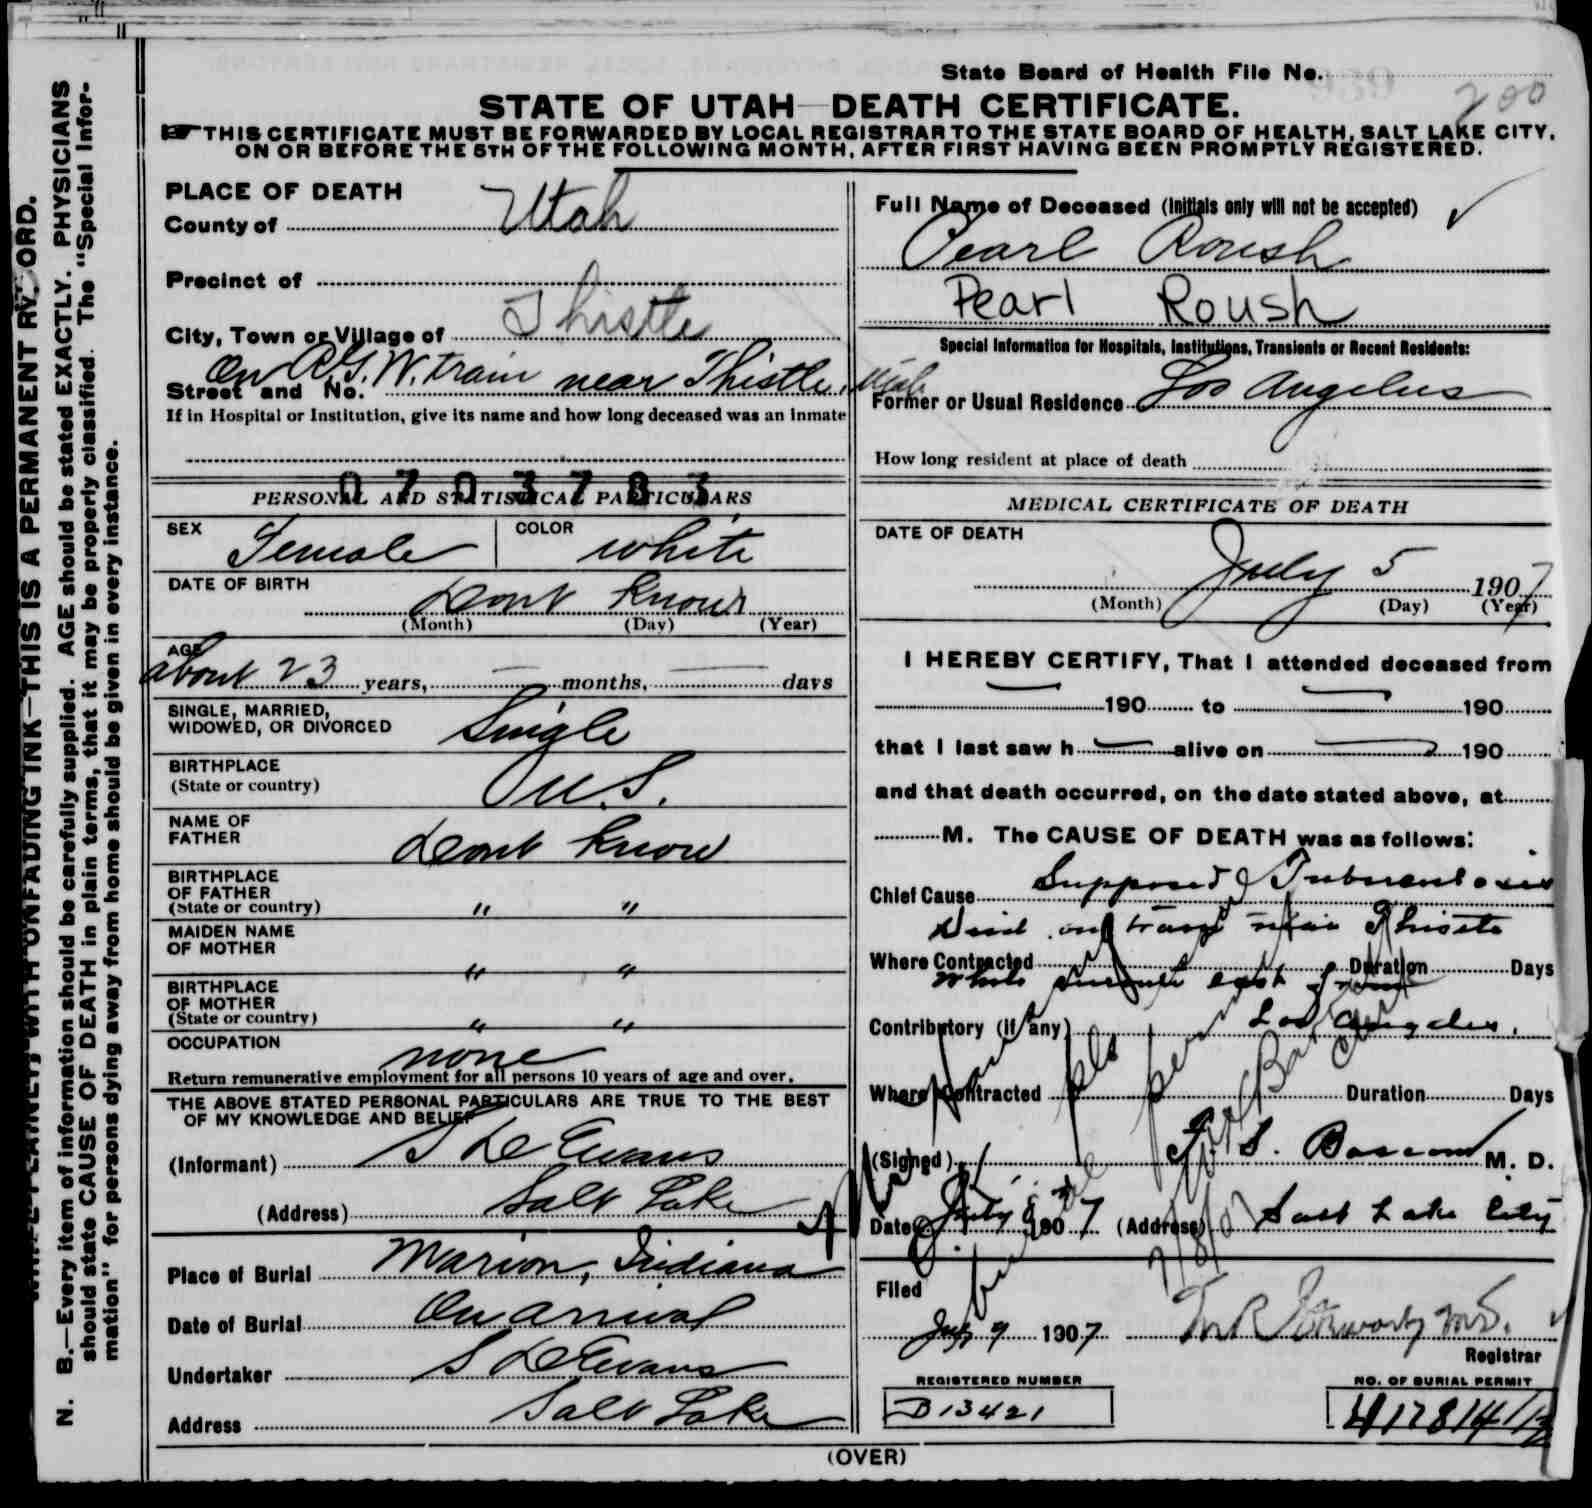 State Board of Health File No.
200
STATE OF UTAH—DEATH CERTIFICATE.
THIS CERTIFICATE MUST BE FORWARDED BY LOCAL REGISTRAR TO THE STATE BOARD OF HEALTH, SALT LAKE CITY,
ON OR BEFORE THE 5TH OF THE FOLLOWING MONTH, AFTER FIRST HAVING BEEN PROMPTLY REGISTERED.
N. B.—Every item of information should be carefully supplied. AGE should be stated EXACTLY. PHYSICIANS
should state CAUSE OF DEATH in plain terms, that it may be properly classified. The "Special Infor-
mation" for persons dying away from home should be given in every instance.
PLACE OF DEATH
County of Utah
Precinct of
City, Town or Village of Thistle
Street and No. On R.G.W. train near Thistle, Utah
If in Hospital or Institution, give its name and how long deceased was an inmate
0703783
PERSONAL AND STATISTICAL PARTICULARS
SEX Female COLOR white
DATE OF BIRTH Dont Know
(Month) (Day) (Year)
AGE about 23 years, — months, — days
SINGLE, MARRIED,
WIDOWED, OR DIVORCED Single
BIRTHPLACE
(State or country) U.S.
NAME OF
FATHER Dont Know
BIRTHPLACE
OF FATHER
(State or country) " "
MAIDEN NAME
OF MOTHER " "
BIRTHPLACE
OF MOTHER
(State or country) " "
OCCUPATION none
Return remunerative employment for all persons 10 years of age and over.
THE ABOVE STATED PERSONAL PARTICULARS ARE TRUE TO THE BEST
OF MY KNOWLEDGE AND BELIEF
(Informant) S D Evans
(Address) Salt Lake
Place of Burial Marion, Indiana
Date of Burial On arrival
Undertaker S D Evans
Address Salt Lake
Full Name of Deceased (Initials only will not be accepted)
Pearl Roush
Pearl Roush
Special Information for Hospitals, Institutions, Transients or Recent Residents:
Former or Usual Residence Los Angelus
How long resident at place of death
MEDICAL CERTIFICATE OF DEATH
DATE OF DEATH
July 5 1907
(Month) (Day) (Year)
I HEREBY CERTIFY, That I attended deceased from
— 190 to — 190
that I last saw h — alive on — 190
and that death occurred, on the date stated above, at
M. The CAUSE OF DEATH was as follows:
Chief Cause Supposed Tuberculosis
Died on train near Thistle
Where Contracted Duration Days
while enroute east from
Contributory (if any) Los Angeles.
Where Contracted Duration Days
(Signed) F. S. Bascom M. D.
Date July 8 1907 (Address) Salt Lake City
7/8/07
Filed
July 9 1907
Registrar
REGISTERED NUMBER
D 13421
NO. OF BURIAL PERMIT
(OVER)